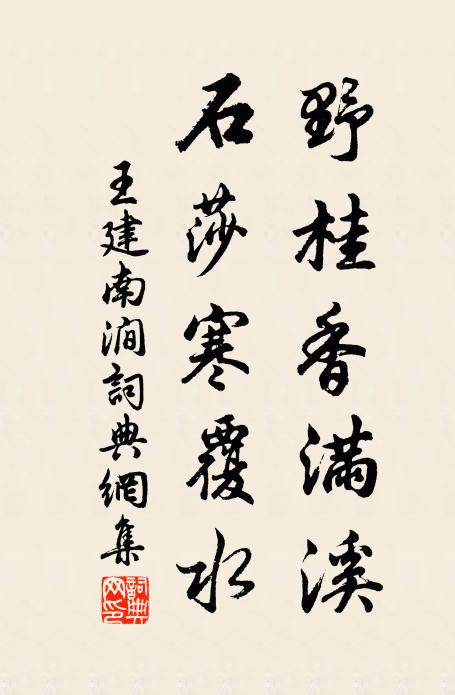 野桂香滿溪
石莎寒覆水
王建南澗詞典網集
詞典網印